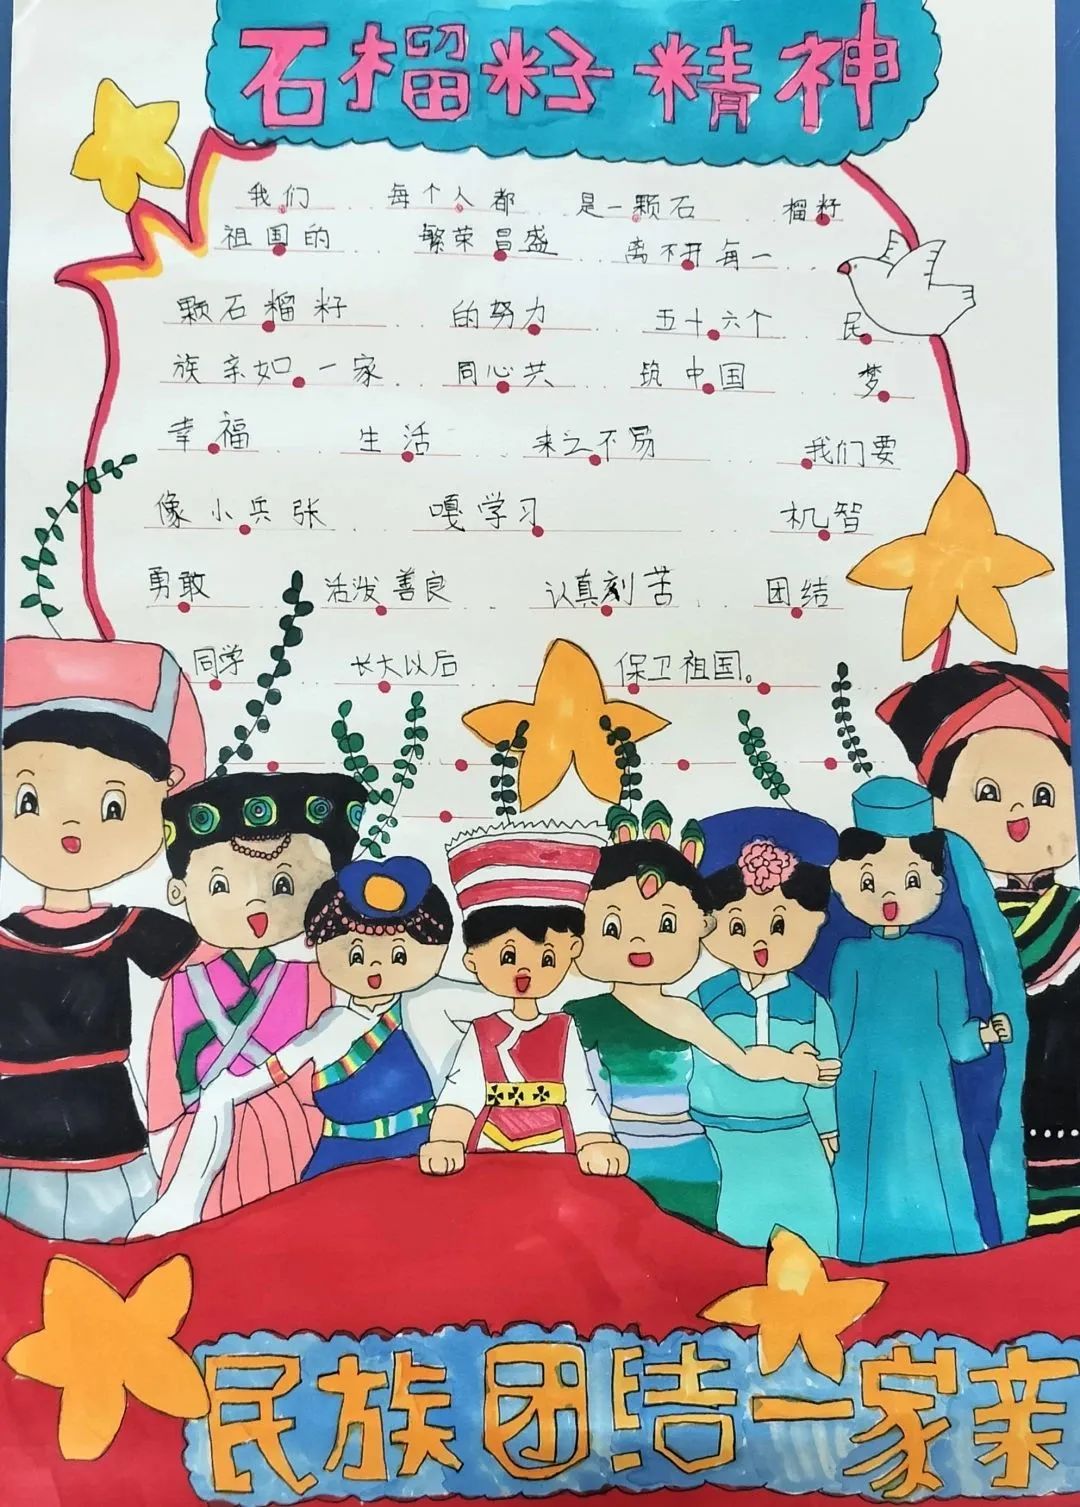 石榴籽精神
我们 每个人都 是一颗石 榴籽
祖国的 繁荣昌盛 离不开每一
颗石榴籽 的努力 五十六个 民
族亲如一家 同心共 筑中国 梦
幸福 生活 来之不易 我们要
像小兵张 嘎学习 机智
勇敢 活泼善良 认真刻苦 团结
同学 长大以后 保卫祖国。
民族团结一家亲